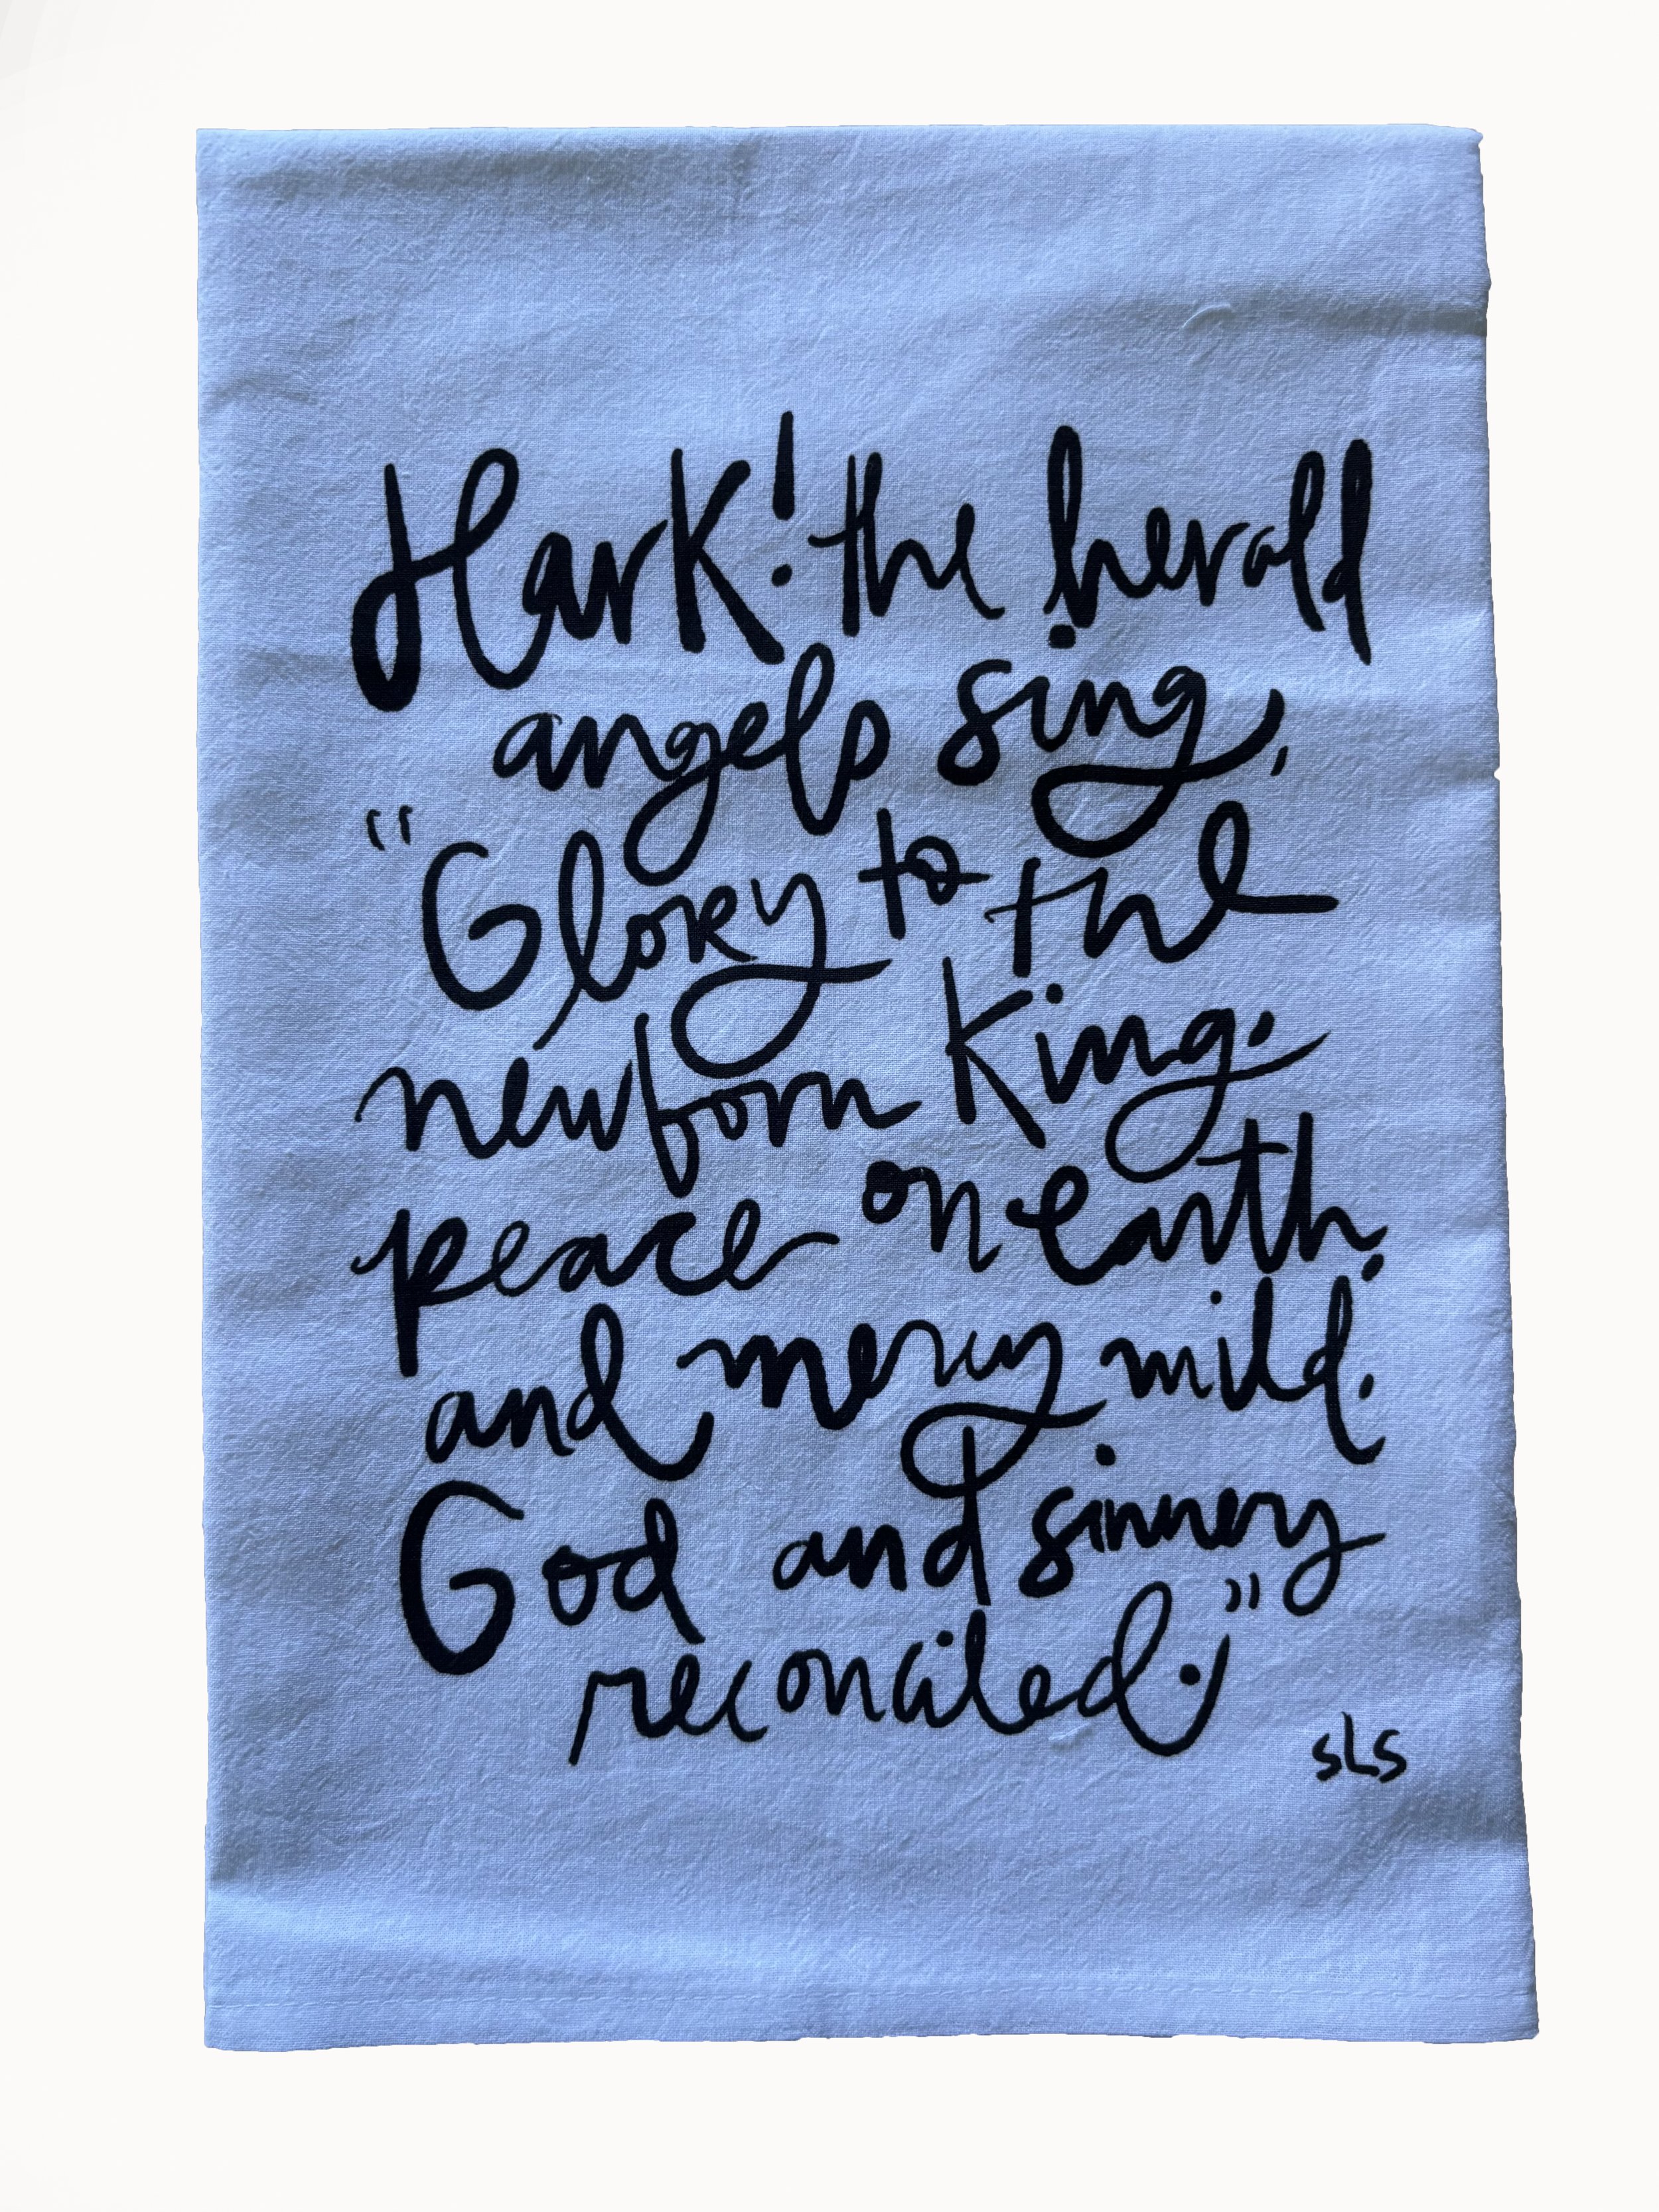 Hark! the herald
angels sing,
"Glory to the
newborn King.
peace on earth,
and mercy mild.
God and sinners
reconciled."
SLS